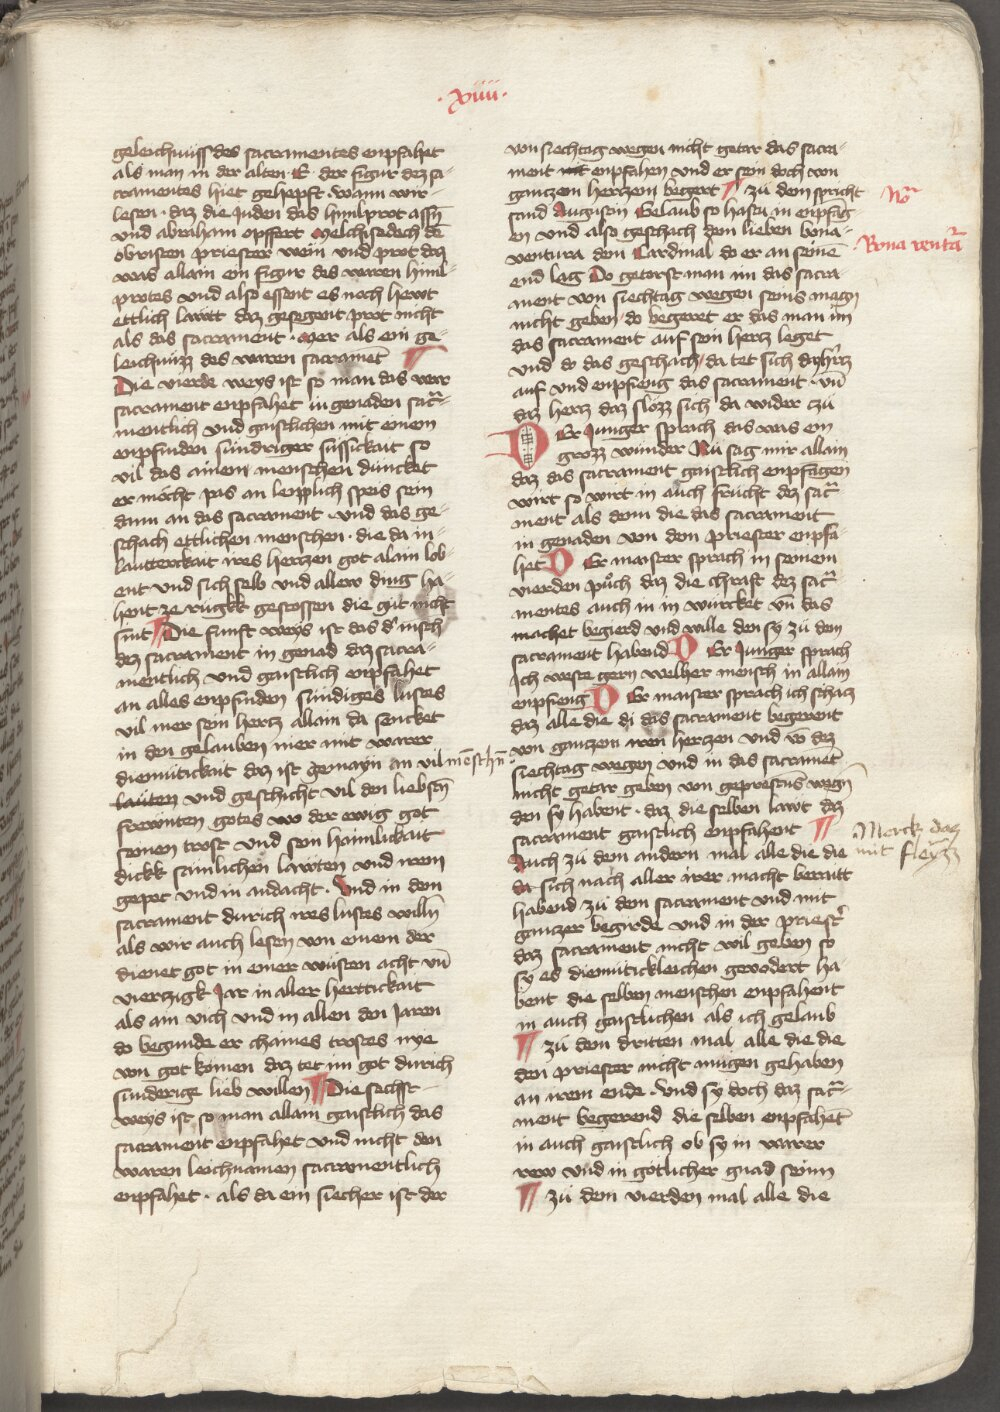 · xiiii ·
geleichnuss des sacramentes enpfahet
als man in der alten · E · der figur dez sa-
cramentes hiet gehepft · wann wir
lesen · daz die Juden das himlprot assn̄
und abraham opffert Melchisedech dē
obristen priester wein und prot daz
was allain ein figur des waren himl-
protes und also essent es noch hewt
ettlich lawtt daz gesegent prot nicht
als das sacrament · Mer als ein ge-
leichnuzz des waren sacramēt ¶
Die vierde weys ist so man das
sacrament enpfahet in genaden sac̄-
mentlich und gaistlichen mit einem
enpfinden sundriger sussickait so
vil das ainem menschen duncket
er mocht pas an leipplich speis sein
dann an das sacrament · und das ge-
schach ettlichen menschen · die da in-
lautterckait ires hertzen got alain lob-
ent und sich selb und aller ding ha-
bent ze rugkk gestossen die gut nicht
sint ¶ Die funft weys ist das d' mēsch
dez sacrament in genad daz sacra-
mentlich und gaistlich enpfahet
an alles enpfinden sundiges lustes
vil mer sein hertz allain da sencket
in den gelauben nier mit warer
diemutickait daz ist gemayn an vil mēschn̄
lauten und geschicht vil den liebstn̄
frewnten gotes wo der ewig got
seinen trost und sein haimlickait
dickk samlichen lawten und irem
gepet und in andacht · Und in dem
sacrament durich ires lustes willn̄
als wir auch lesen von einem der
dienet got in einer wusten acht un̄
vierczigk Jar in aller herttickait
als ain vich und in allen den Jaren
do begunde er chaines trostes nye
von got komen daz tet im got durich
sunderige lieb willen ¶ Die sechst
weys ist so man allain gaistlich das
sacrament enpfahet und nicht den
waren leichnamen sacramentlich
enpfahet · als da ein siecher ist der
von siechtag wegen nicht getar das sacra-
ment nit enpfahen und er sein doch von
gantzem hertzem begert ¶ zu dem spricht
sand Augustin Gelaub so hastu in enpfāg
en und also geschach dem lieben bona-
ventura dem Cardinal do er an seinē
end lag Do getorst man im das sacra-
ment von siechtag wegen seins magn̄
nicht geben · do begeret er das man im
das sacrament auf sein hertz leget
und do das geschach / da tet sich
auf und enpfieng das sacrament · un̄
daz hertz daz slozz sich da wider czu
Er Junger sprach das was ein
grozz wunder Nu sag mir allain
daz das sacrament gaistlich enpfāgen
wirt so wirt in auch frucht dez sac̄-
ment als denn die das sacrament
in genaden von dem priester enpfa-
het Er maister sprach in seinem
vierden puͦch daz die chraft dez sac̄-
mentes auch in in wurcket un̄ das
machet begierd und wille den sy zu dem
sacrament habend Er Junger sprach
Ich weste gern welher mensch in allain
enpfieng Er maister sprach ich schacz
daz alle die di das sacrament begerent
von ganczem iren hertzen und vō dez
siechtag wegen und in das sacramēt
nicht getar geben von geprestns̄ wegn̄
den sy habent · daz die selben lawt daz
sacrament gaistlich enpfahent ¶
Auch zu dem andern mal alle die die
da sich nach aller irer macht beraitt
habend zu dem sacrament und mit
ganczer begirde und in der priest'
daz sacrament nicht wil geben so
sy es diemuticklichen gevodert ha-
bent die selben menschen enpfahent
in auch gaistlichen als ich gelaub
¶ zu dem dritten mal alle die die
den priester nicht mugen gehaben
an irem ende · Und sy doch daz sac̄-
ment begerend die selben enpfahēt
in auch gaistlich ob sy in warer
rew und in gotlicher gnad seinn
¶ zu dem vierden mal alle die
Nō
Bona ventā
Merck daz
mit fleyzz